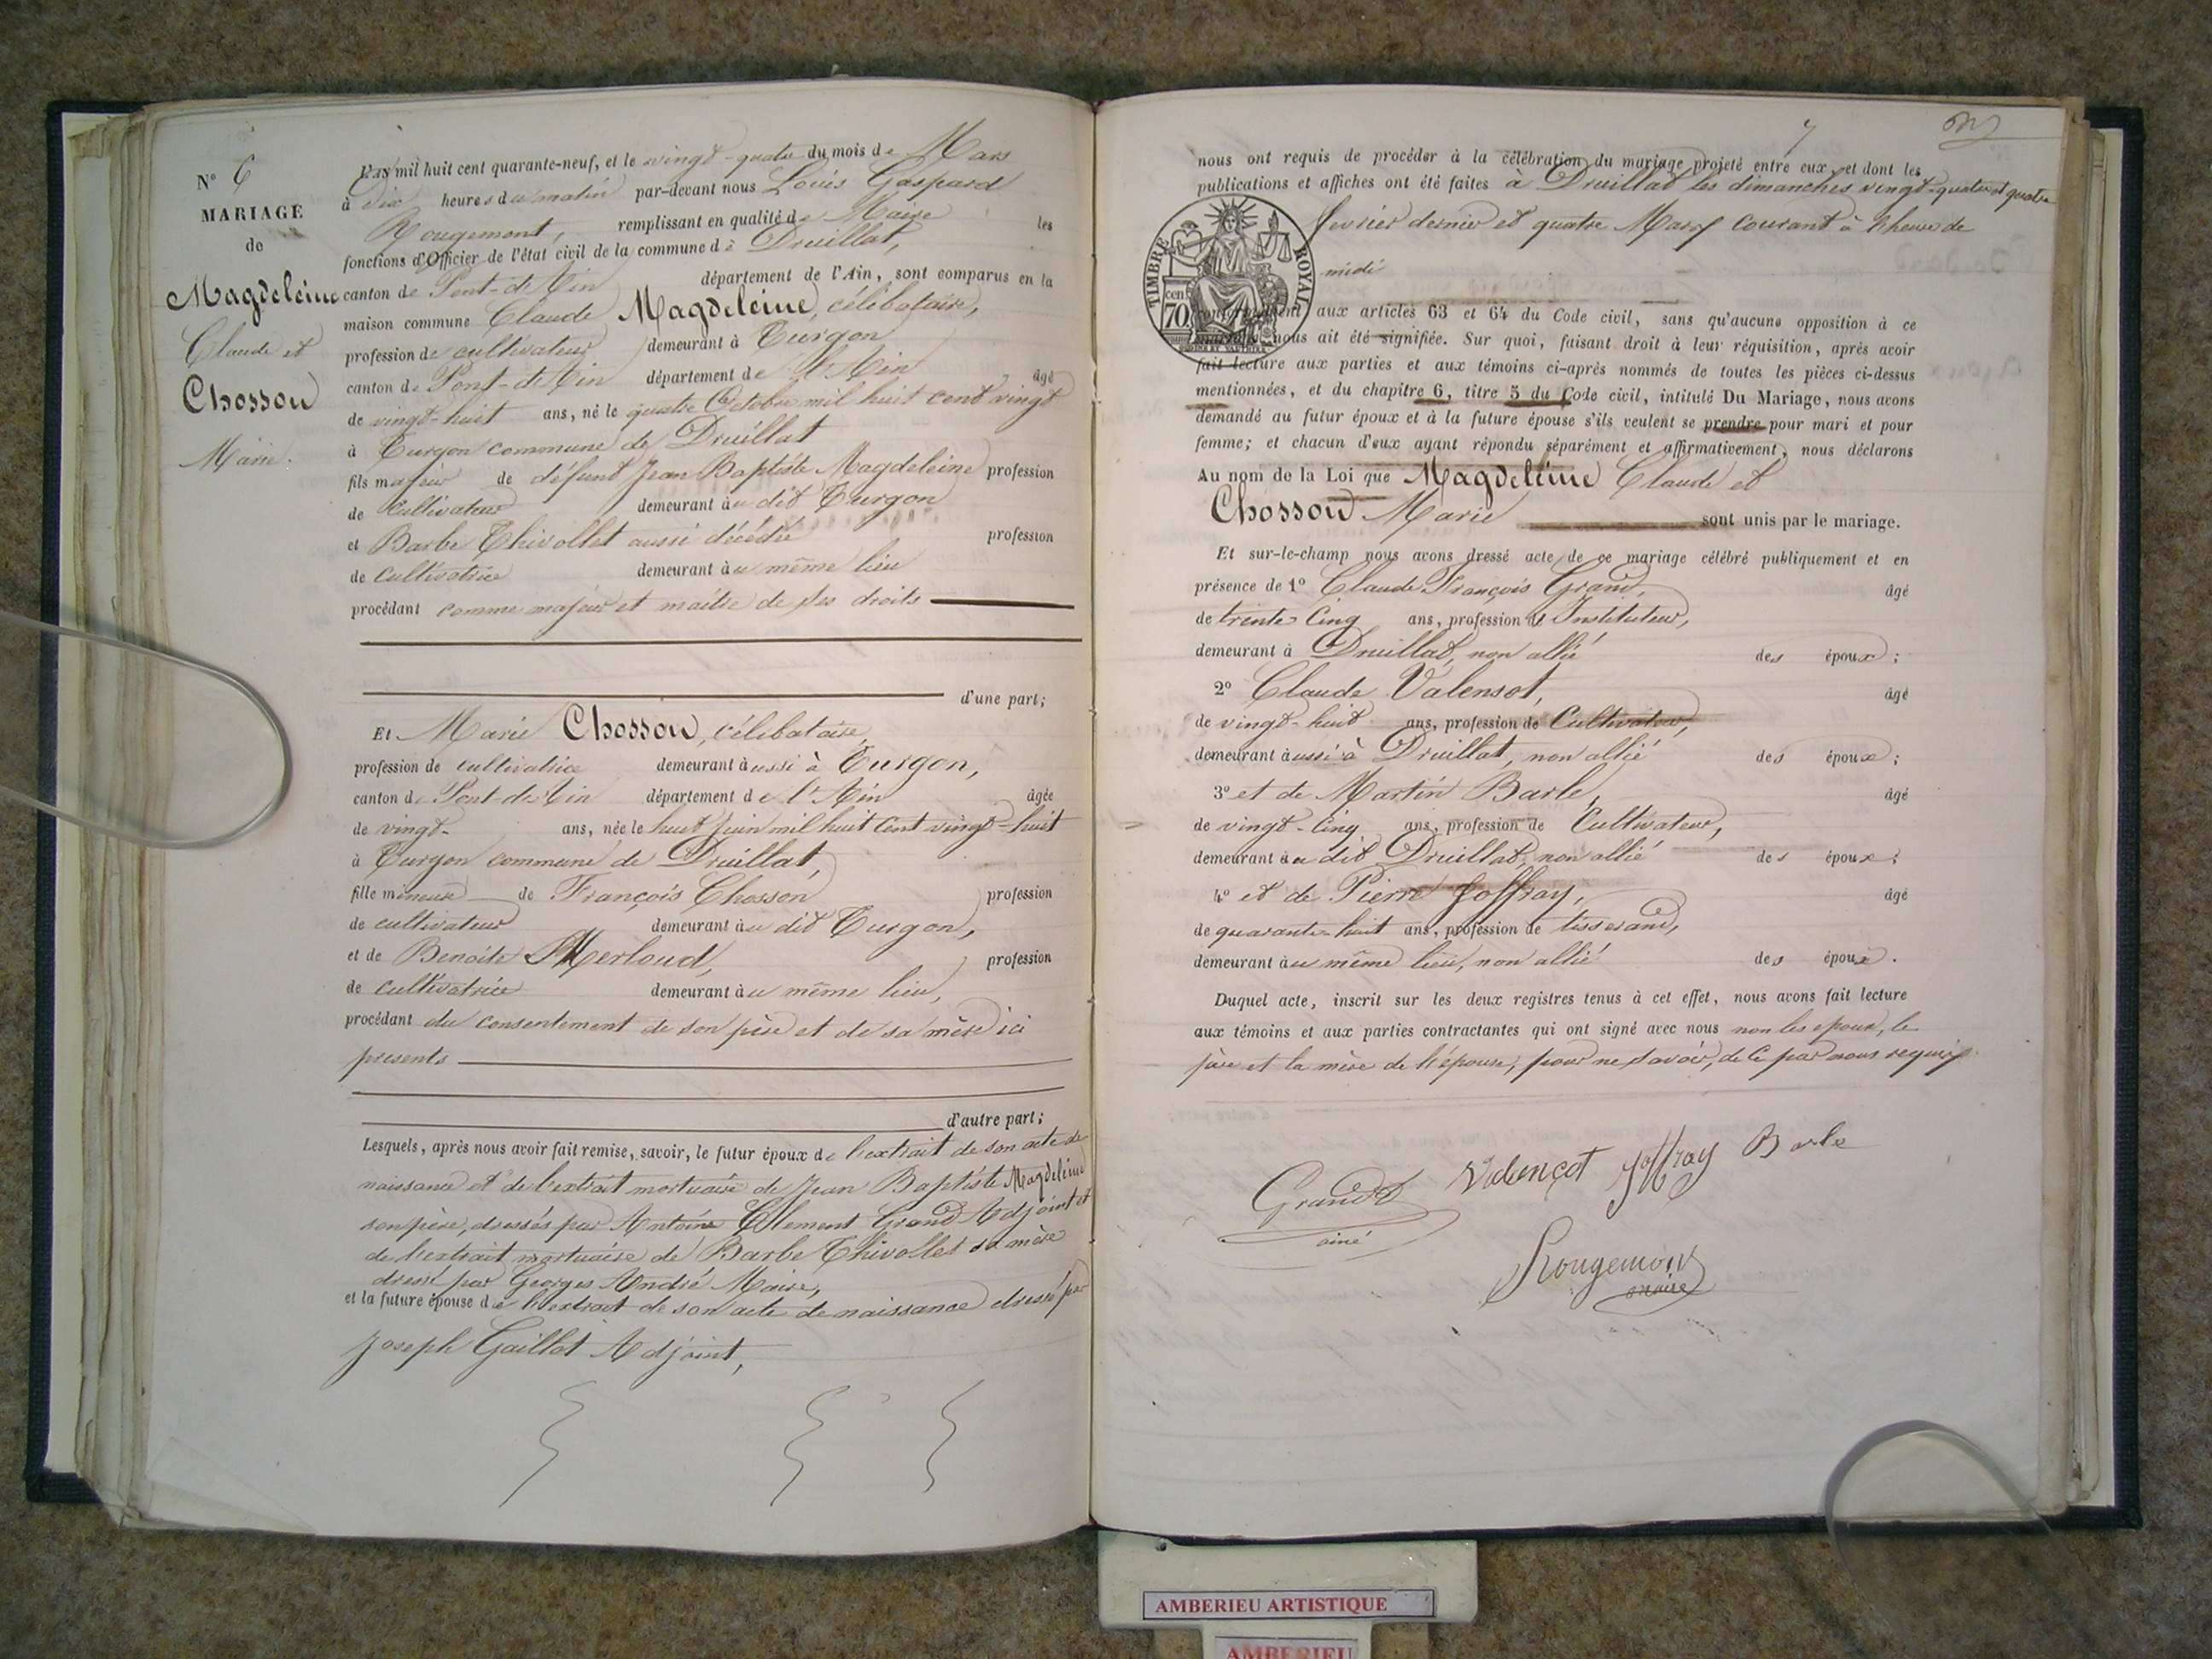 N° 6
MARIAGE
de
Magdeleine
Claude et
Chosson
Marie.
L'an mil huit cent quarante-neuf, et le vingt-quatre du mois de Mars
à Dix heures du matin par-devant nous Louis Gaspard
Rougemont, remplissant en qualité de Maire les
fonctions d'Officier de l'état civil de la commune de Druillat,
canton de Pont-de-Ain département de l'Ain, sont comparus en la
maison commune Claude Magdeleine, célibataire,
profession de cultivateur demeurant à Turgon
canton de Pont-de-Ain département de l'Ain âgé
de vingt-huit ans, né le quatre Octobre mil huit cent vingt
à Turgon commune de Druillat
fils majeur de défunt Jean Baptiste Magdeleine profession
de Cultivateur demeurant au dit Turgon
et Barbe Thivollet aussi décédée profession
de cultivatrice demeurant au même lieu
procédant comme majeur et maître de ses droits
d'une part;
Et Marie Chosson, célibataire,
profession de cultivatrice demeurant aussi à Turgon,
canton de Pont-de-Ain département de l'Ain âgée
de vingt- ans, née le huit Juin mil huit cent vingt-huit
à Turgon commune de Druillat,
fille mineure de François Chosson profession
de cultivateur demeurant au dit Turgon,
et de Benoite Merloud, profession
de cultivatrice demeurant au même lieu,
procédant du consentement de son père et de sa mère ici
presents
d'autre part;
Lesquels, après nous avoir fait remise, savoir, le futur époux de l'extrait de son acte de
naissance et de l'extrait mortuaire de Jean Baptiste Magdeleine
son père, dressés par Antoine Clement Grand Adjoint et
de l'extrait mortuaire de Barbe Thivollet sa mère
dressé par Georges André Maire,
et la future épouse de l'extrait de son acte de naissance dressé par
Joseph Gaillot Adjoint,
7
nous ont requis de procéder à la célébration du mariage projeté entre eux, et dont les
publications et affiches ont été faites à Druillat les dimanches vingt-quatre et quatre
fevrier dernier et quatre Mars courant à l'heure de
midi
TIMBRE ROYAL
70 cen
conformément aux articles 63 et 64 du Code civil, sans qu'aucune opposition à ce
mariage nous ait été signifiée. Sur quoi, faisant droit à leur réquisition, après avoir
fait lecture aux parties et aux témoins ci-après nommés de toutes les pièces ci-dessus
mentionnées, et du chapitre 6, titre 5 du Code civil, intitulé Du Mariage, nous avons
demandé au futur époux et à la future épouse s'ils veulent se prendre pour mari et pour
femme; et chacun d'eux ayant répondu séparément et affirmativement, nous déclarons
Au nom de la Loi que Magdeleine Claude et
Chosson Marie sont unis par le mariage.
Et sur-le-champ nous avons dressé acte de ce mariage célébré publiquement et en
présence de 1° Claude François Grand, âgé
de trente-Cinq ans, profession d'Instituteur,
demeurant à Druillat, non allié des époux;
2° Claude Valensot, âgé
de vingt-huit ans, profession de Cultivateur,
demeurant aussi à Druillat, non allié des époux;
3° et de Martin Barle, âgé
de vingt-Cinq ans, profession de Cultivateur,
demeurant au dit Druillat, non allié des époux;
4° et de Pierre Joffray, âgé
de quarante-huit ans, profession de tisserand,
demeurant au même lieu, non allié des époux.
Duquel acte, inscrit sur les deux registres tenus à cet effet, nous avons fait lecture
aux témoins et aux parties contractantes qui ont signé avec nous non les epoux, le
père et la mère de l'épouse, pour ne savoir, de ce par nous requis
Grand Valençot Joffray Barle
ainé
Rougemont
maire
AMBERIEU ARTISTIQUE
AMBERIEU